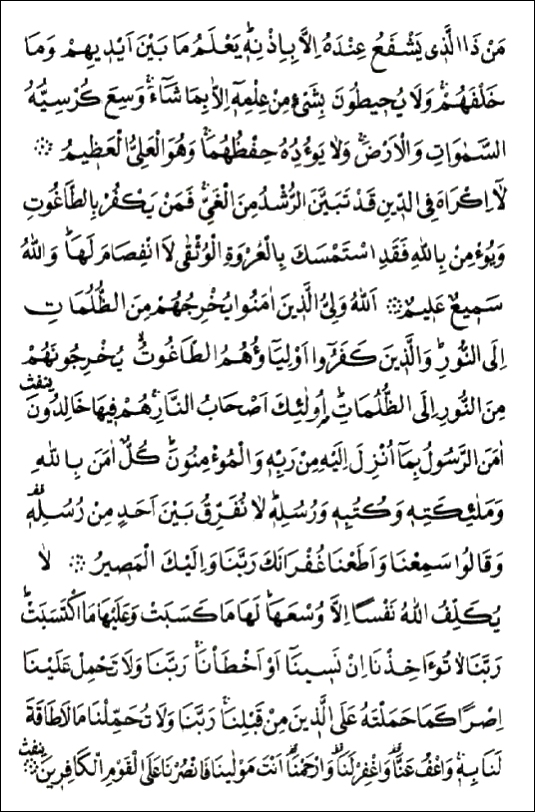 مَنْ ذَا الَّذ۪ى يَشْفَعُ عِنْدَهُٓ اِلَّا بِاِذْنِه۪ۜ يَعْلَمُ مَا بَيْنَ اَيْد۪يهِمْ وَمَا
خَلْفَهُمْۚ وَلَا يُح۪يطُونَ بِشَىْءٍ مِنْ عِلْمِه۪ٓ اِلَّا بِمَا شَٓاءَۚ وَسِعَ كُرْسِيُّهُ
السَّمٰوَاتِ وَالْاَرْضَۚ وَلَا يَؤُ۫دُهُ حِفْظُهُمَاۚ وَهُوَ الْعَلِىُّ الْعَظ۪يمُ ❊
لَٓا اِكْرَاهَ فِى الدّ۪ينِ قَدْ تَبَيَّنَ الرُّشْدُ مِنَ الْغَىِّۚ فَمَنْ يَكْفُرْ بِالطَّاغُوتِ
وَيُؤْمِنْ بِاللّٰهِ فَقَدِ اسْتَمْسَكَ بِالْعُرْوَةِ الْوُثْقٰى لَا انْفِصَامَ لَهَاۜ وَاللّٰهُ
سَم۪يعٌ عَل۪يمٌ ❊ اَللّٰهُ وَلِىُّ الَّذ۪ينَ اٰمَنُوا يُخْرِجُهُمْ مِنَ الظُّلُمَاتِ
اِلَى النُّورِۜ وَالَّذ۪ينَ كَفَرُٓوا اَوْلِيَٓاؤُ۬هُمُ الطَّاغُوتُۙ يُخْرِجُونَهُمْ
مِنَ النُّورِ اِلَى الظُّلُمَاتِۜ اُو۬لٰٓئِكَ اَصْحَابُ النَّارِۚ هُمْ ف۪يهَا خَالِدُونَ
اٰمَنَ الرَّسُولُ بِمَٓا اُنْزِلَ اِلَيْهِ مِنْ رَبِّه۪ وَالْمُؤْمِنُونَۜ كُلٌّ اٰمَنَ بِاللّٰهِ
وَمَلٰٓئِكَتِه۪ وَكُتُبِه۪ وَرُسُلِه۪ۜ لَا نُفَرِّقُ بَيْنَ اَحَدٍ مِنْ رُسُلِه۪۠
وَقَالُوا سَمِعْنَا وَاَطَعْنَا غُفْرَانَكَ رَبَّنَا وَاِلَيْكَ الْمَص۪يرُ ❊ لَا
يُكَلِّفُ اللّٰهُ نَفْسًا اِلَّا وُسْعَهَاۜ لَهَا مَا كَسَبَتْ وَعَلَيْهَا مَا اكْتَسَبَتْۜ
رَبَّنَا لَا تُؤَاخِذْنَٓا اِنْ نَس۪ينَٓا اَوْ اَخْطَاْنَاۚ رَبَّنَا وَلَا تَحْمِلْ عَلَيْنَٓا
اِصْرًا كَمَا حَمَلْتَهُ عَلَى الَّذ۪ينَ مِنْ قَبْلِنَاۚ رَبَّنَا وَلَا تُحَمِّلْنَا مَا لَا طَاقَةَ
لَنَا بِه۪ۚ وَاعْفُ عَنَّا۠ وَاغْفِرْ لَنَا۠ وَارْحَمْنَا۠ اَنْتَ مَوْلٰينَا فَانْصُرْنَا عَلَى الْقَوْمِ الْكَافِر۪ينَ ❊